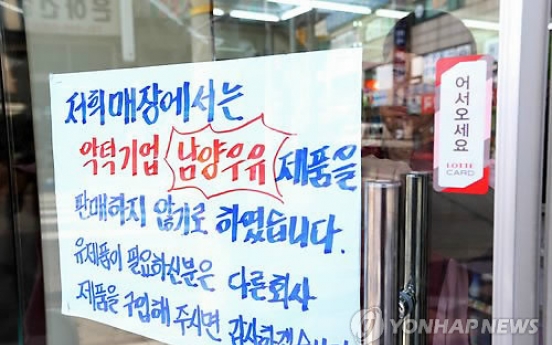 저희매장에서는
악덕기업 남양우유 제품을
판매하지 않기로 하였습니다.
유제품이 필요하신분은 다른회사
제품을 구입해 주시면 감사하겠습니다
어서오세요
LOTTE
CARD
YONHAP NEWS